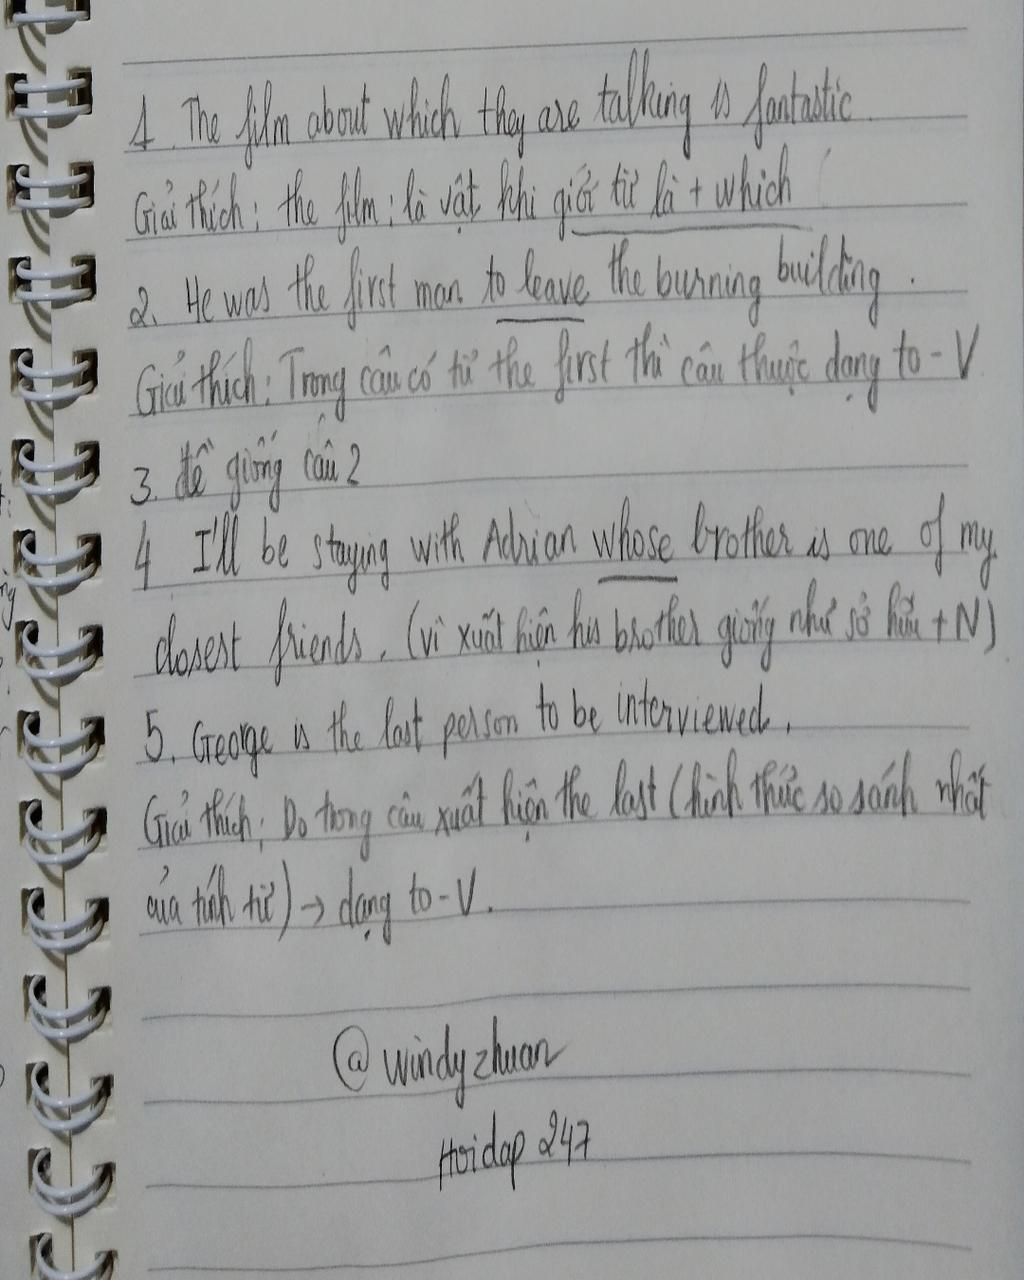 1. The film about which they are talking is fantastic.
Giải thích: the film: là vật khi giới từ là + which
2. He was the first man to leave the burning building.
Giải thích: Trong câu có từ the first thì câu thuộc dạng to - V
3. đề giống câu 2
4 I'll be staying with Adrian whose brother is one of my
closest friends. (vì xuất hiện his brother giống như sở hữu + N)
5. George is the last person to be interviewed.
Giải thích: Do trong câu xuất hiện the last (hình thức so sánh nhất
của tính từ) → dạng to - V.
@windyzhuan
Hoidap 247